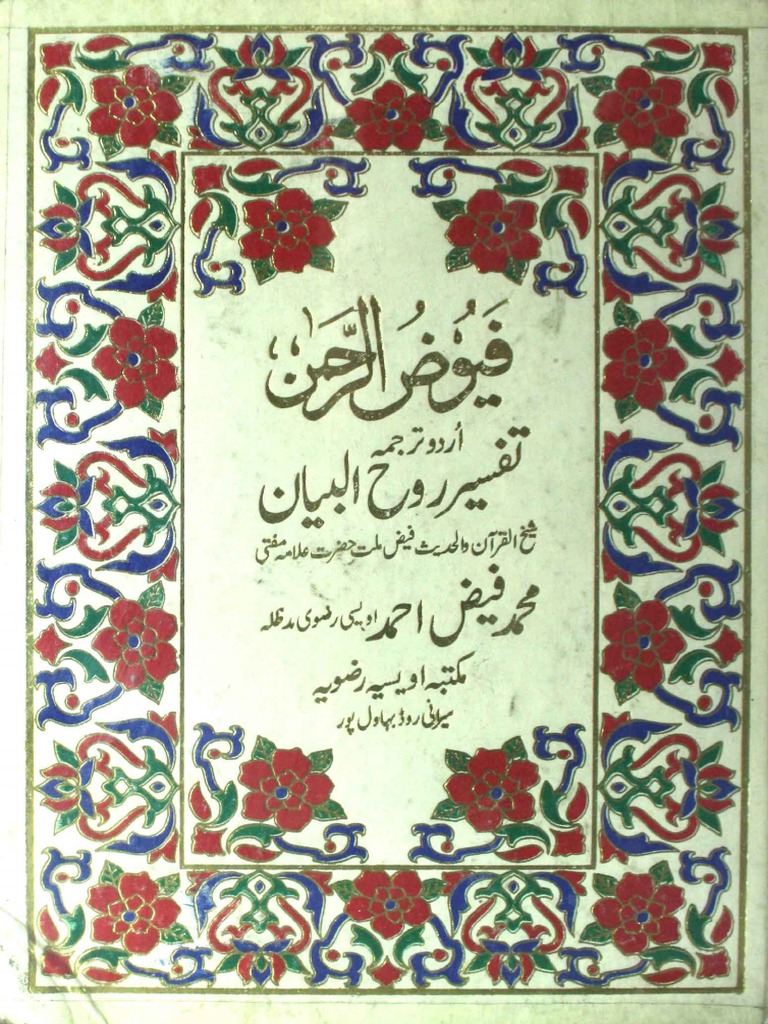 فَیُوضُ الرَّحمٰن
اُردو ترجمہ
تفسیر روح البیان
شیخ القرآن والحدیث فیض ملت حضرت علامہ مفتی
محمد فیض احمد اویسی رضوی مدظلہ
مکتبہ اویسیہ رضویہ
سیرانی روڈ بہاول پور